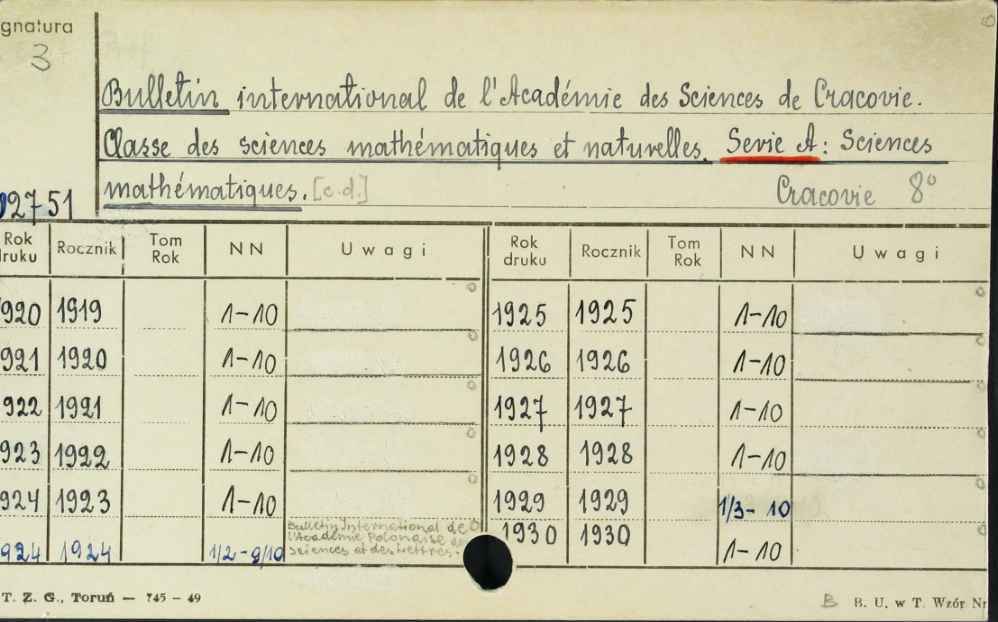 gnatura
3
Bulletin international de l'Académie des Sciences de Cracovie.
Classe des sciences mathématiques et naturelles. Serie A: Sciences
mathématiques. [c.d.] Cracovie 8°
02751
Rok druku Rocznik Tom Rok NN Uwagi Rok druku Rocznik Tom Rok NN Uwagi
1920 1919 1-10 1925 1925 1-10
921 1920 1-10 1926 1926 1-10
922 1921 1-10 1927 1927 1-10
923 1922 1-10 1928 1928 1-10
924 1923 1-10 1929 1929 1/3-10
Bulletin International de
l'Académie Polonaise des
Sciences et des Lettres.
924 1924 1/2-9/10 1930 1930 1-10
T. Z. G., Toruń — 745 - 49 B B. U. w T. Wzór Nr